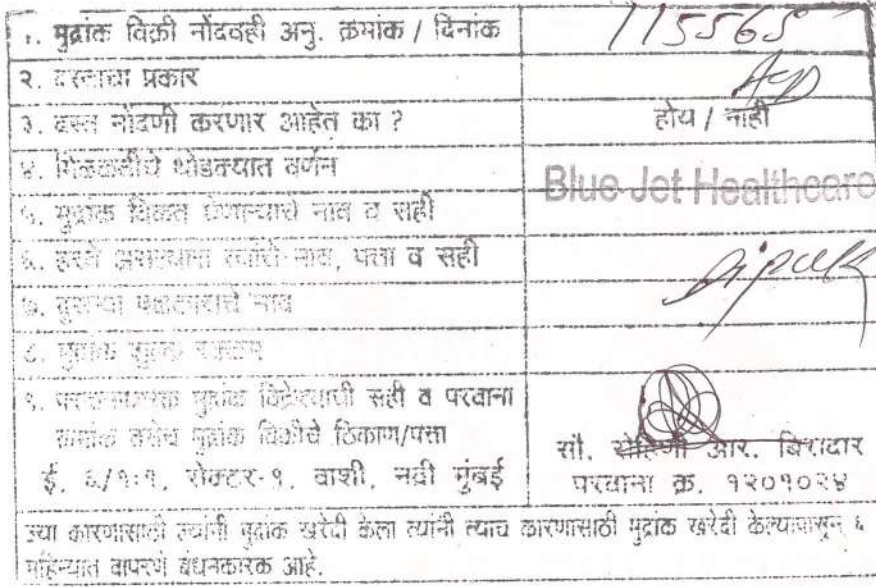 १. मुद्रांक विक्री नोंदवही अनु. क्रमांक / दिनांक 115565
२. दस्ताचा प्रकार
३. दस्त नोंदणी करणार आहेत का ? होय / नाही
४. मिळकतीचे थोडक्यात वर्णन
Blue Jet Healthcare
५. मुद्रांक विकत घेणाऱ्याचे नाव व सही
६. हस्ते असल्यास त्यांचे नाव, पत्ता व सही
७. दुसऱ्या पक्षकाराचे नाव
८. मुद्रांक शुल्क रक्कम
९. परवानाधारक मुद्रांक विक्रेत्याची सही व परवाना
क्रमांक तसेच मुद्रांक विक्रीचे ठिकाण/पत्ता सौ. रोहिणी आर. बिरादार
सेक्टर-१, वाशी, नवी मुंबई परवाना क्र. १२०१०२४
ज्या कारणासाठी ज्यांनी मुद्रांक खरेदी केला त्यांनी त्याच कारणासाठी मुद्रांक खरेदी केल्यापासून ६
महिन्यात वापरणे बंधनकारक आहे.